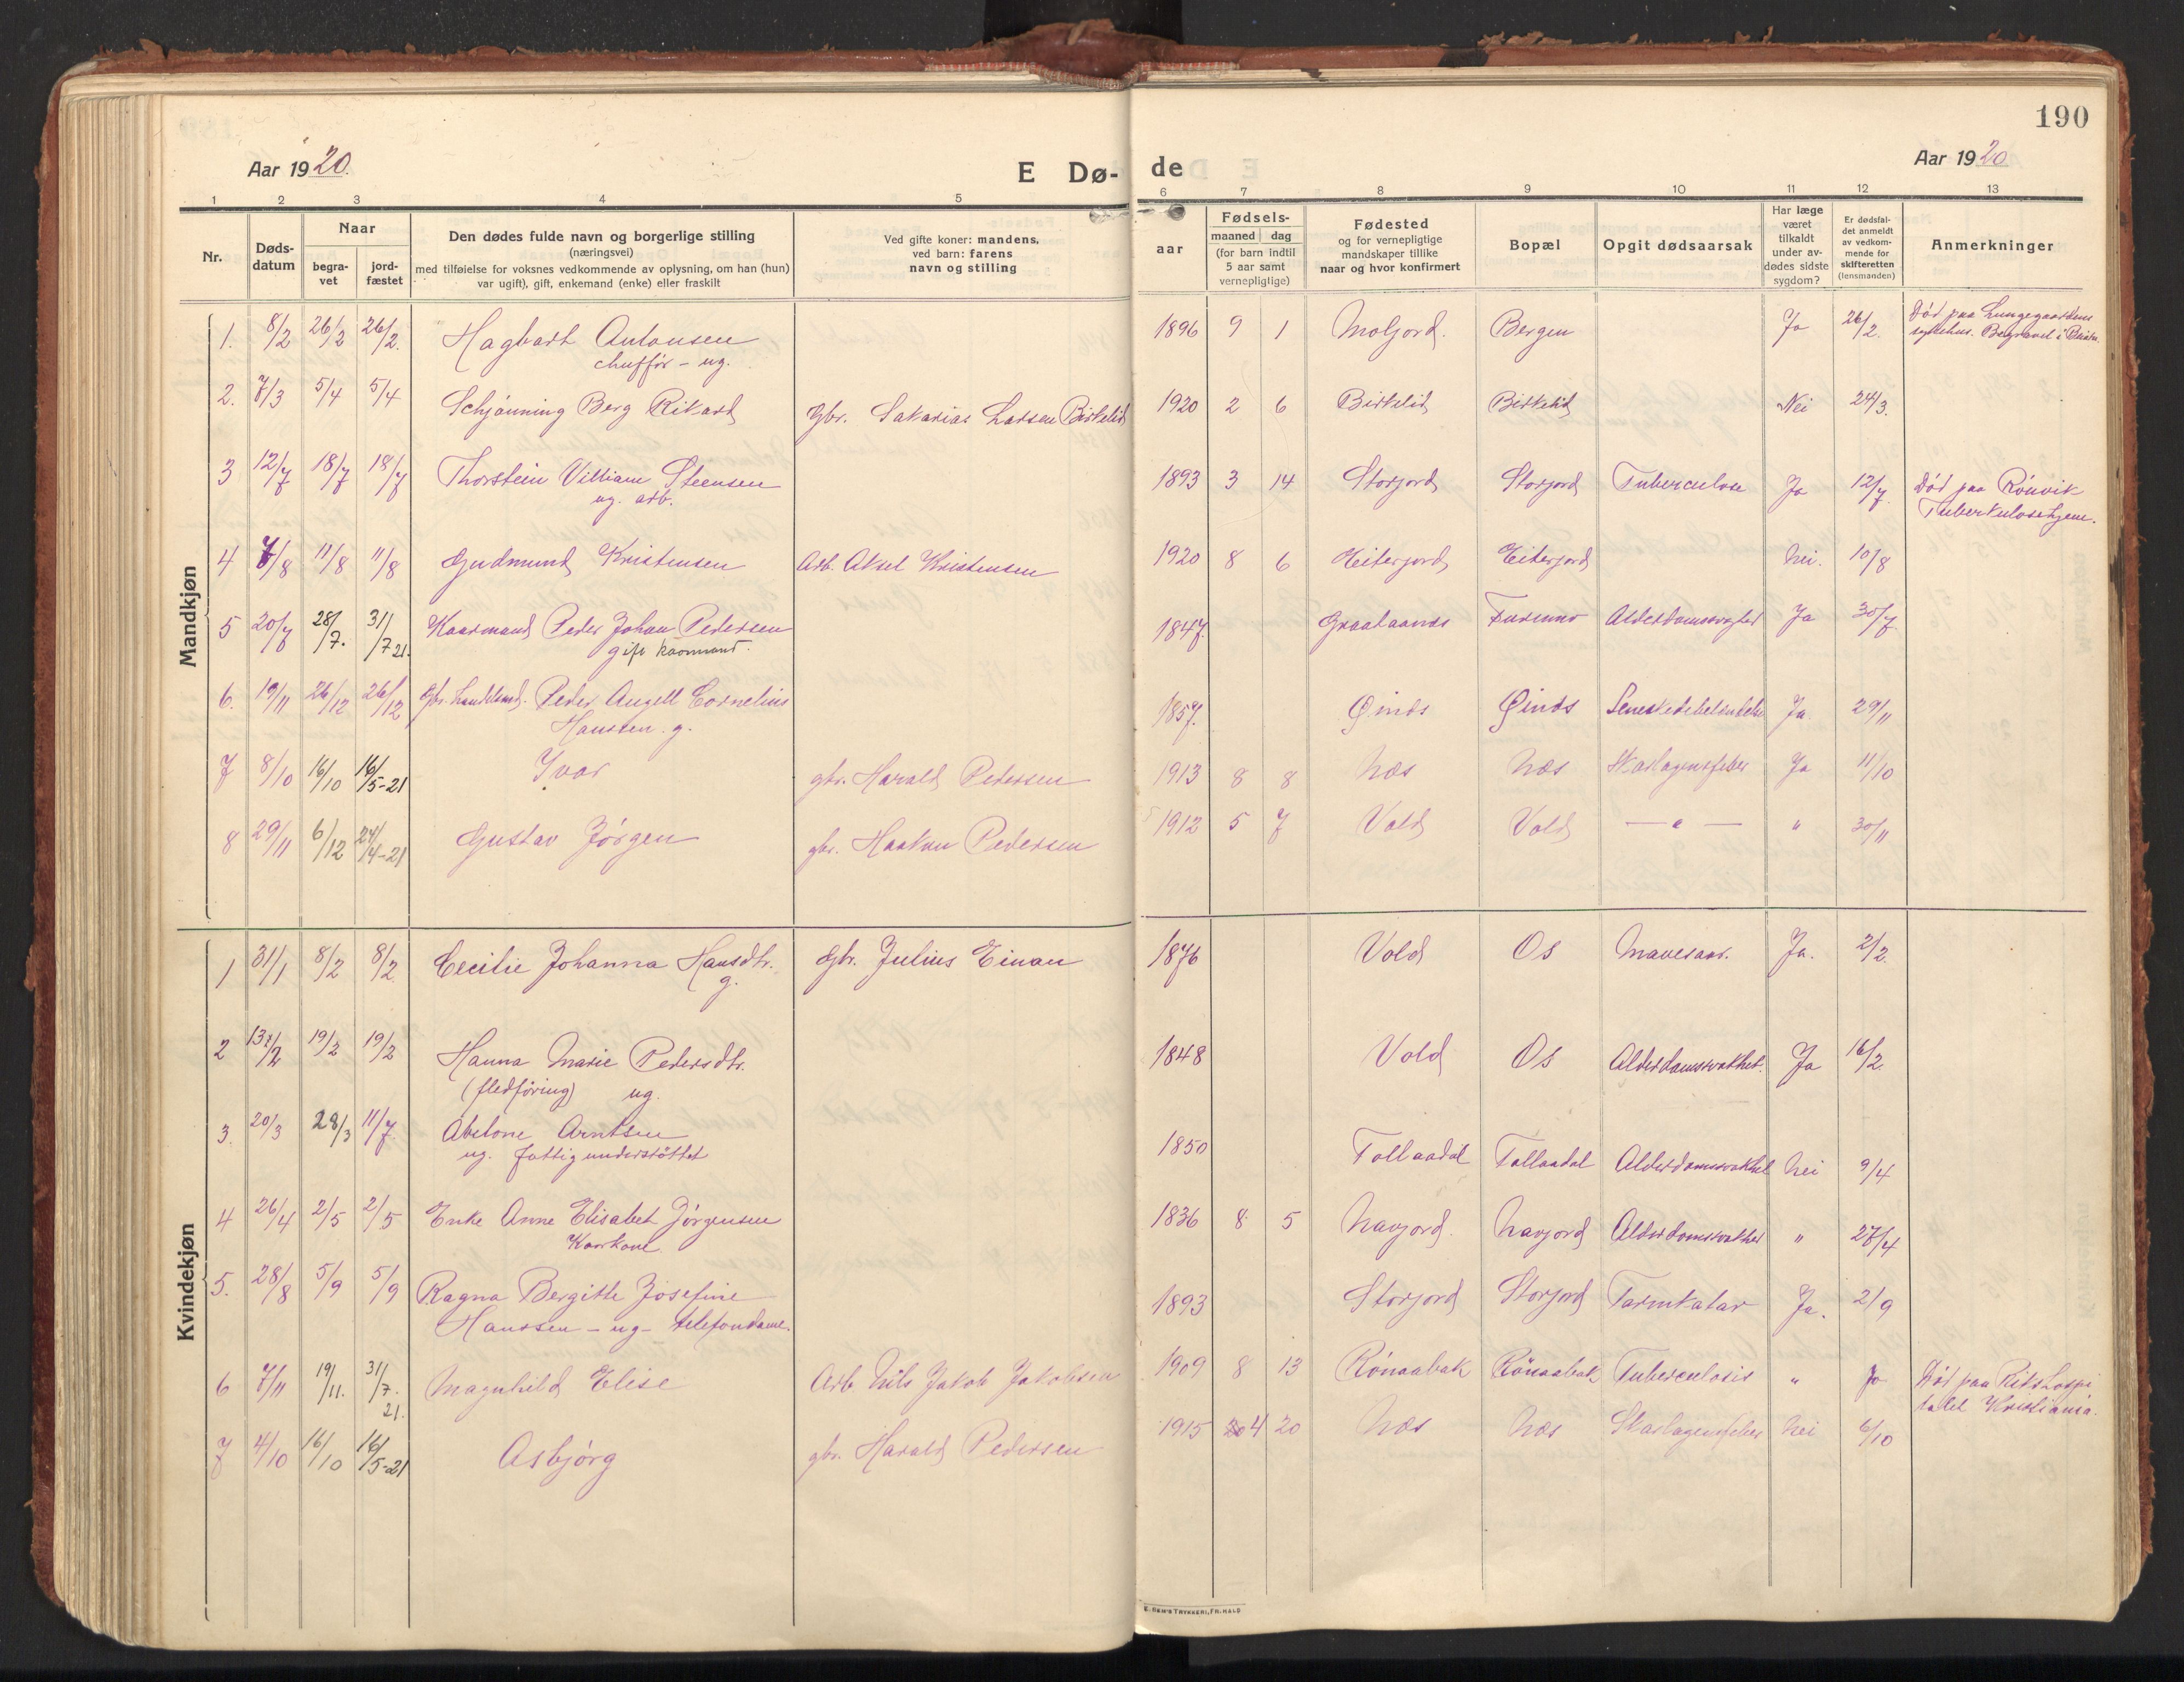 190
Aar 1920.
E Dø-de
Aar 1920
1 2 3 4 5 6 7 8 9 10 11 12 13
Nr.
Døds-datum
Naar
begra-vet
jord-fæstet
Den dødes fulde navn og borgerlige stilling
(næringsvei)
med tilføielse for voksnes vedkommende av oplysning, om han (hun)
var ugift), gift, enkemand (enke) eller fraskilt
Ved gifte koner: mandens,
ved barn: farens
navn og stilling
aar
Fødsels-
maaned dag
(for barn indtil
5 aar samt
vernepligtige)
Fødested
og for vernepligtige
mandskaper tillike
naar og hvor konfirmert
Bopæl
Opgit dødsaarsak
Har læge
været
tilkaldt
under av-
dødes sidste
sygdom?
Er dødsfal-
det anmeldt
av vedkom-
mende for
skifteretten
(lensmanden)
Anmerkninger
Mandkjøn
1. 8/2 26/2 26/2. Hagbart Antonsen 1896 9 1 Moljord. Bergen Ja 26/2. Død paa Lungegaardens
chuffør - ug. sykehus. Begravet i
2. 7/3 5/4 5/4 Schjønning Berg Rikard gbr. Sakarias Larsen Birkelid 1920 2 6 Birkelid Birkelid Nei 24/3.
3 12/7 18/7 18/7 Thorstein Villiam Steensen 1893 3 14 Storjord Storjord Tuberculose Ja 12/7. Død paa Rönvik
ug. arb. Tuberkulosehjem.
4 7/8 11/8 11/8 Gudmund Kristensen Arb. Aksel Kristensen 1920 8 6 Eiterjord Eiterjord Nei. 10/8
5 20/7 28/7. 31/7 21. Kaarmand Peder Johan Pedersen 1847. Graataanes Furumo Ja 30/7
gift kaarmand.
6. 19/11 26/12 26/12 Gbr. Peder Angell Cornelius 1857. Øinds Øinds Ja 29/11
Hanssen. g.
7 8/10 16/10 16/5-21 Ivar gbr. Harald Pedersen 1913 8 8 Næs Næs Skarlagensfeber Ja 11/10
8 29/11 6/12 24/4-21 Gustav Jørgen gbr. Haakon Pedersen 1912 5 7 Vold Vold — " — " 30/11
Kvindekjøn
1 31/1 8/2 8/2. Cecilie Johanna Hansdtr. Gbr. Julius Einan 1876 Vold Os Mavesaar. Ja. 2/2.
g.
2 13/2 19/2 19/2 Hanna Marie Pedersdtr. 1848 Vold Os Alderdomssvakhet. Ja 16/2.
(fledføring) ug.
3. 20/3 28/3 11/7 Abelone Arntsen 1850 Tollaadal Tollaadal Alderdomssvakhet Nei 9/4
ug. fattigunderstöttet
4 26/4 2/5 2/5 Enke Anne Elisabet Jörgensen 1836 8 5 Navjord. Navjord Alderdomssvakhet " 27/4
Kaarkone
5. 28/8 5/9 5/9 Ragna Bergitte Josefine 1893 Storjord Storjord Tarmkatar Ja. 2/9
Hanssen - ug - telefondame.
6 7/11 19/11. 31/7. 21. Magnhild Elise Arb Nils Jakob Jakobsen 1909 8 13 Rönaabak Rönaabak Tuberculosis " Ja Död paa Rikshospi
talet Kristiania.
7 4/10 16/10 16/5-21 Asbjørg gbr. Harald Pedersen 1915 4 20 Næs Næs Skarlagensfeber Nei 6/10
E. SEM'S TRYKKERI, FR.HALD